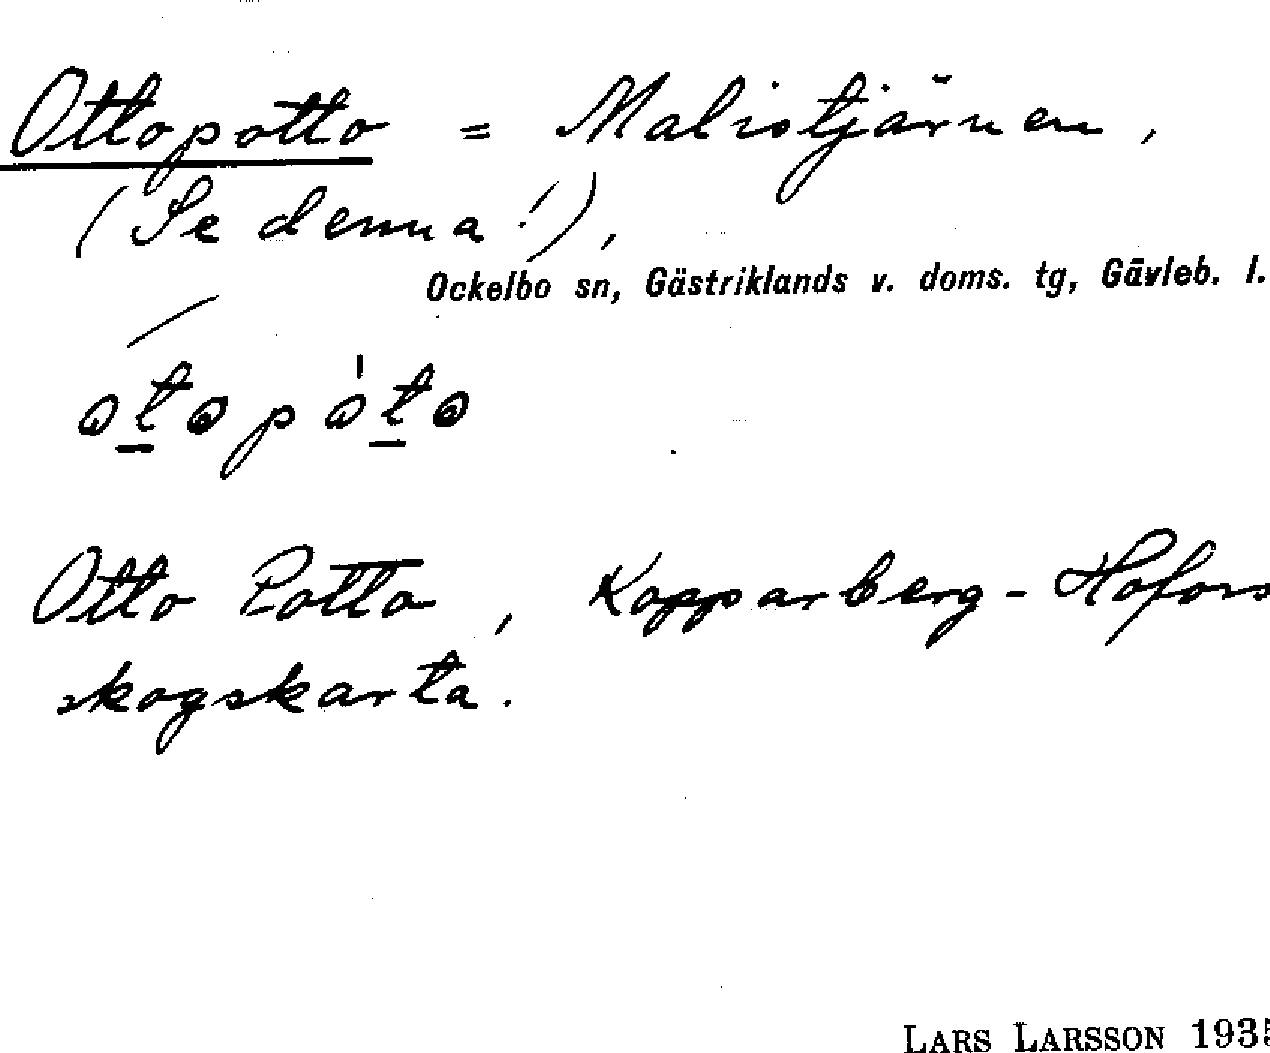 Ottopotto = Malistjärnen,
(Se denna!),
Ockelbo sn, Gästriklands v. doms. tg, Gävleb. l.
otopòto
Otto Potto, Kopparberg-Hofors
skogskarta.
LARS LARSSON 1935